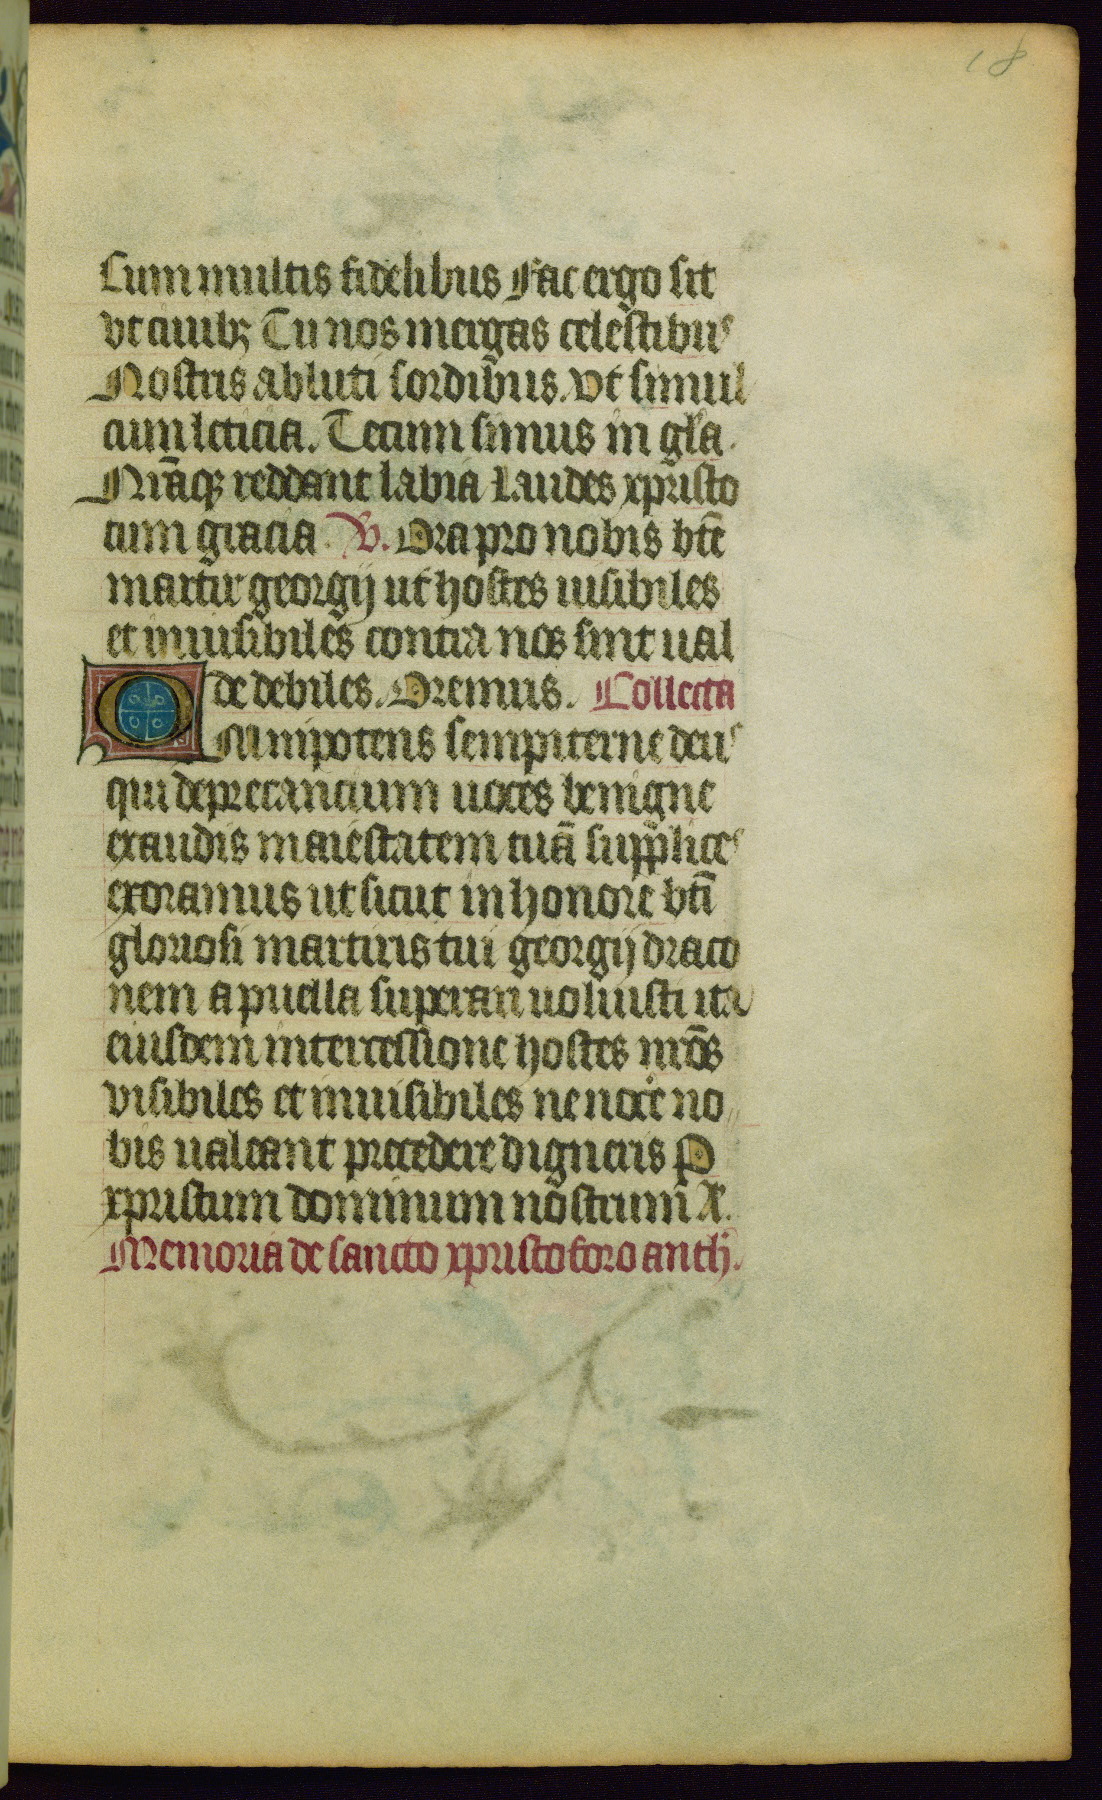 18
Cum multis fidelibus Fac ergo sit
vt ciuibꝫ Tu nos mergas celestibus
Nostris abluti sordibꝰ. Vt simul
cum leticia. Tecum simus in gl̄a.
Nr̄aqꝫ reddant labia Laudes xp̄risto
cum gracia. V. Ora pro nobis bt̄e
martir georgij ut hostes uisibiles
et inuisibiles contra nos sint ual
de debiles. Oremus. Collecta
Omnipotens sempiterne deus
qui deprecancium uoces benigne
exaudis maiestatem tuā supplices
exoramus ut sicut in honore bt̄i
gloriosi martiris tui georgij draco
nem a puella superari uoluisti ita
eiusdem intercessione hostes nr̄os
visibiles et inuisibiles ne nocere no
bis ualeant precedere digneris P
xpristum dominum nostrum A.
Memoria de sancto xpristoforo anth̄.